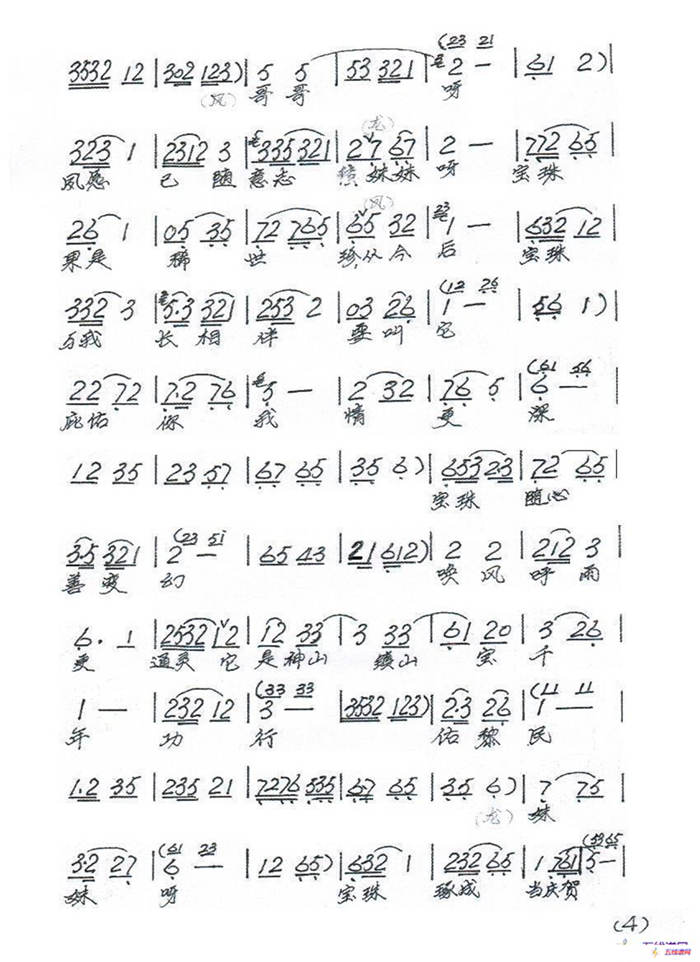 3532 12 | 302 123) | 5 5 | 53 321 | 2 — | 61 2) |
(23 21
(凤) 哥哥 呀
323 1 | 2312 3 | 335321 | 27 67 | 2 — | 772 65 |
(龙)
夙愿 已 随 意志 妹妹 呀 宝珠
26 1 | 05 35 | 72 765 | 65 32 | 1 — | 632 12 |
(凤) 23
果是 稀 世 珍,从今 后 宝珠
332 3 | 5·3 321 | 253 2 | 03 26 | 1 — | 56 1) |
(12 26
与我 长相伴 要叫 它
22 72 | 7·2 76 | 5 — | 2 32 | 76 5 | 6 — |
(61 56
庇佑 你 我 情 更 深
12 35 | 23 57 | 67 65 | 35 6) | 653 23 | 72 65 |
宝珠 随心
3·5 321 | 2 — | 65 43 | 21 612) | 2 2 | 212 3 |
(23 51
善变 幻 唤风呼雨
6· 1 | 2532 12 | 12 33 | 3 33 | 61 20 | 3 26 |
更 通灵 它 是神山 镇山 宝 千
1 — | 232 12 | 3 — | 3532 123) | 2·3 26 | 1 — |
(33 33 (11 11
年 功 行 佑 黎 民
1·2 35 | 235 21 | 7276 535 | 67 65 | 35 6) | 7 75 |
(龙) 妹
3·2 27 | 6 — | 12 65) | 632 1 | 232 65 | 1 761 | 5 — |
(61 23 (35 65
妹 呀 宝珠 琢成 当庆贺
(4)
五线谱网